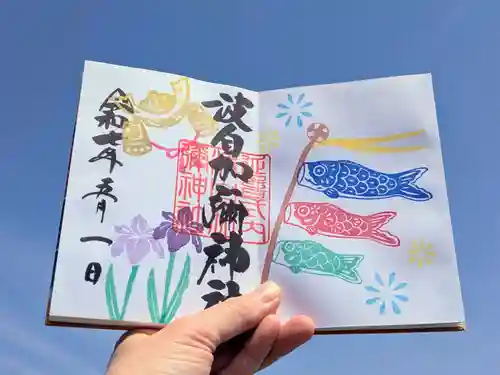 波自加彌神社
令和七年五月一日
延喜式内
彌神社